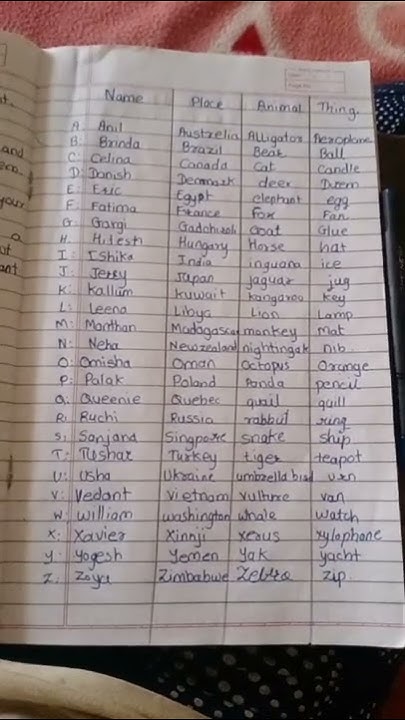 nt.
and
your
a
of
ant
Name Place Animal Thing.
A: Anil Australia Alligator Aeroplane
B: Brinda Brazil Bear Ball
C: Celina Canada Cat Candle
D: Danish Denmark deer Drem
E: Eric Egypt elephant egg
F: Fatima France Fox Fan
G: Gargi Gadchiroli Goat Glue
H: Hitesh Hungary Horse hat
I: Ishika India inguana ice
J: Jerry Japan jaguar jug
K: Kallum Kuwait kangaroo Key
L: Leena Libya Lion Lamp
M: Manthan Madagascar monkey Mat
N: Neha Newzealand nightingale nib
O: Omisha Oman Octopus Orange
P: Palak Poland Panda pencil
Q: Queenie Quebec quail quill
R: Ruchi Russia rabbut ring
S: Sanjana Singpore snake ship
T: Tushar Turkey tiger teapot
U: Usha Ukraine umbrella bird urn
V: Vedant vietnam vulhre van
W: William washington whale Watch
X: Xavier Xinnji xerus xylophone
Y: Yogesh Yemen Yak yacht
Z: Zoya Zimbabwe Zebra Zip